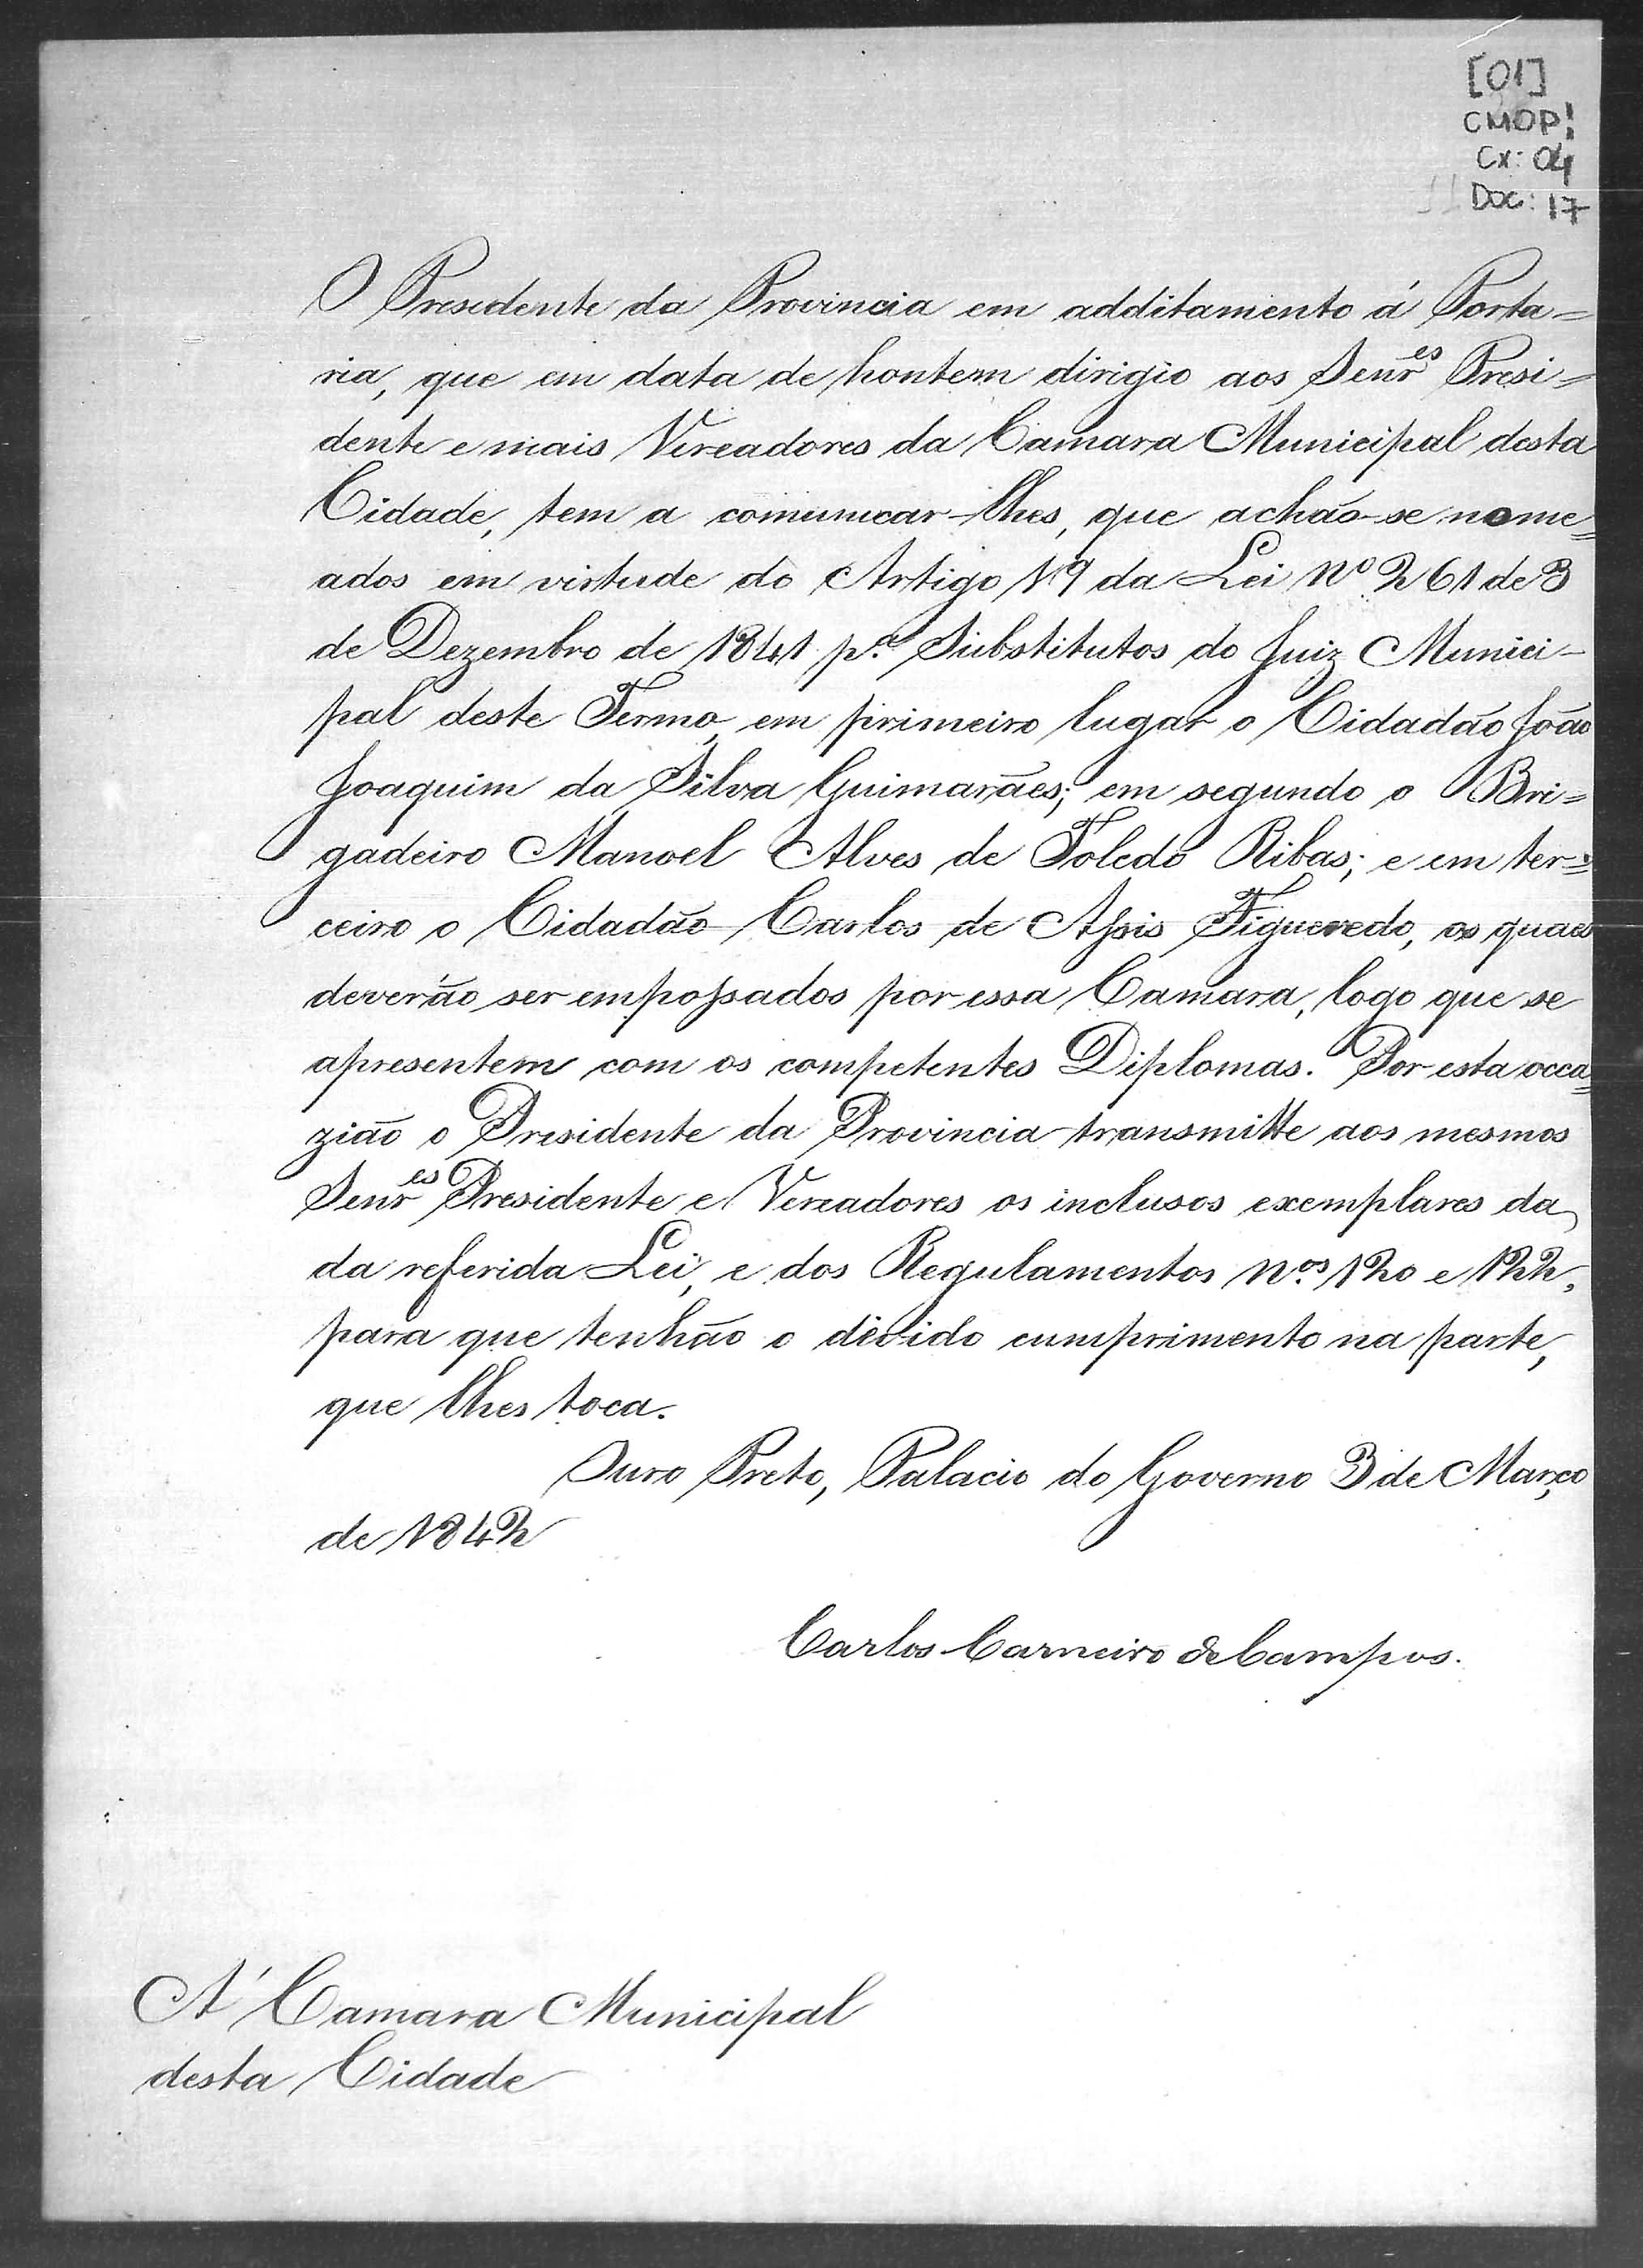 [01]
CMOP!
Cx: 04
Doc: 17
O Presidente da Provincia em additamento á Porta=
ria, que em data de hontem dirigio aos Senr.es Presi=
dente e mais Vereadores da Camara Municipal desta
Cidade, tem a comunicar-lhes, que achão-se nome=
ados em virtude do Artigo 19 da Lei Nº 261 de 3
de Dezembro de 1841 p.a Substitutos do Juiz Munici-
pal deste Termo, em primeiro lugar o Cidadão João
Joaquim da Silva Guimarães; em segundo o Bri=
gadeiro Manoel Alves de Toledo Ribas; e em ter=
ceiro o Cidadão Carlos de Assis Figueredo, os quaes
deverão ser empossados por essa Camara, logo que se
apresentem com os competentes Diplomas. Por esta occa=
zião o Presidente da Provincia transmitte aos mesmos
Senr.es Presidente e Vereadores os inclusos exemplares da
da referida Lei, e dos Regulamentos N.os 120 e 122,
para que tenhão o divido cumprimento na parte,
que lhes toca.
Ouro Preto, Palacio do Governo 3 de Março
de 1842
Carlos Carneiro de Campos.
Á Camara Municipal
desta Cidade